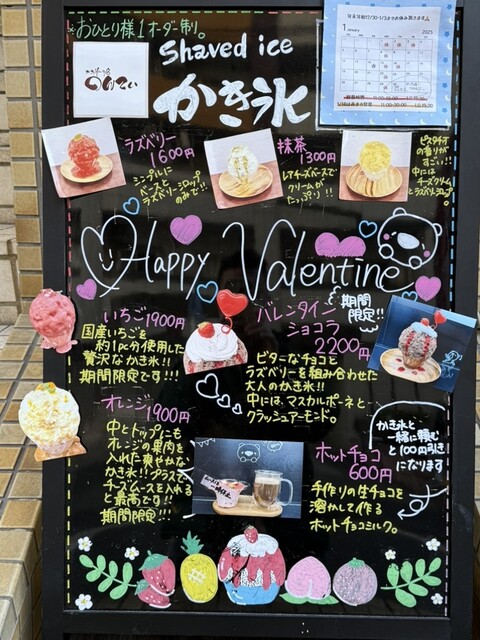 おひとり様1オーダー制。
Shaved ice
かき氷
1
January
2025
ラズベリー
1600円
シンプルに
ベースと
ラズベリーシロップ
のみで!!
抹茶
1300円
レアチーズベースで
クリームが
たっぷり!!
ピスタチオ
の香りが
すごい!!
中には
チーズクリーム
とラズベリーシロップ。
Happy Valentine
いちご1900円
国産いちごを
約1pc分使用した
贅沢なかき氷!!
期間限定です!!!
バレンタイン
ショコラ
2200円
期間
限定!!
ビターなチョコと
ラズベリーを組み合わせた
大人のかき氷!!
中には、マスカルポーネと
クラッシュアーモンド。
オレンジ
1900円
中とトップにも
オレンジの果肉を
入れた爽やかな
かき氷!!プラスで
チーズムースを入れる
と最高です!!
期間限定!!!
ホットチョコ
600円
手作りの生チョコを
溶かして作る
ホットチョコミルク。
かき氷と
一緒に頼む
と100円引き
になります